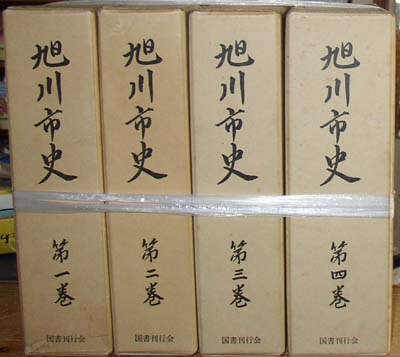 旭川市史
第一巻
国書刊行会
旭川市史
第二巻
国書刊行会
旭川市史
第三巻
国書刊行会
旭川市史
第四巻
国書刊行会